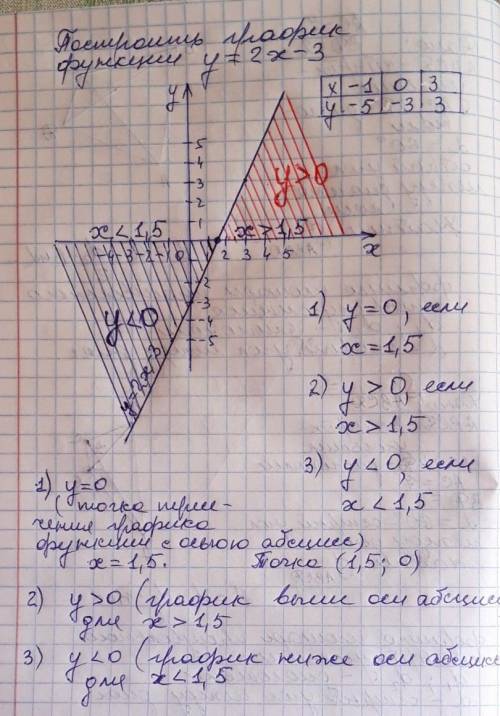 Построить график
функции y = 2x-3
x -1 0 3
y -5 -3 3
y
5
4
3
2
1
y>0
x<1,5
x>1,5
-4 -3 -2 -1 0 1 2 3 4 5
x
-2
-3
-4
-5
y<0
y=2x-3
1) y=0, если
x=1,5
2) y>0, если
x>1,5
3) y<0, если
x<1,5
1) y=0
(точка пересе-
чения графика
функции с осью абсцисс)
x=1,5. Точка (1,5; 0)
2) y>0 (график выше оси абсцисс
для x>1,5
3) y<0 (график ниже оси абсцисс
для x<1,5